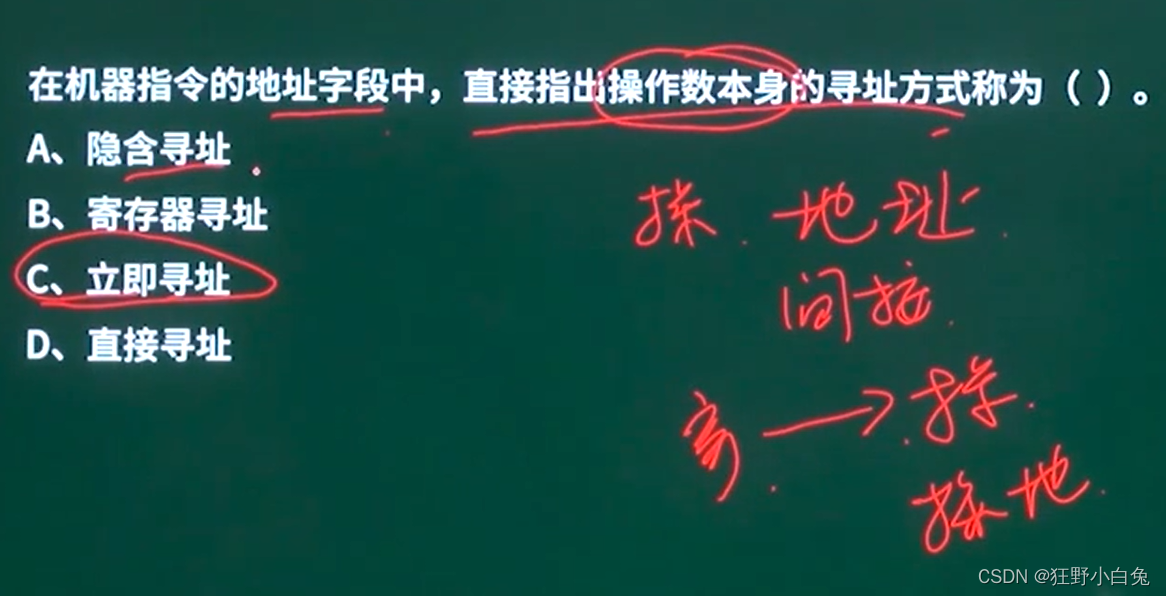 在机器指令的地址字段中，直接指出操作数本身的寻址方式称为（ ）。
A、隐含寻址
B、寄存器寻址
C、立即寻址
D、直接寻址
操 地址
间接
寄 → 操
操地
CSDN @狂野小白兔